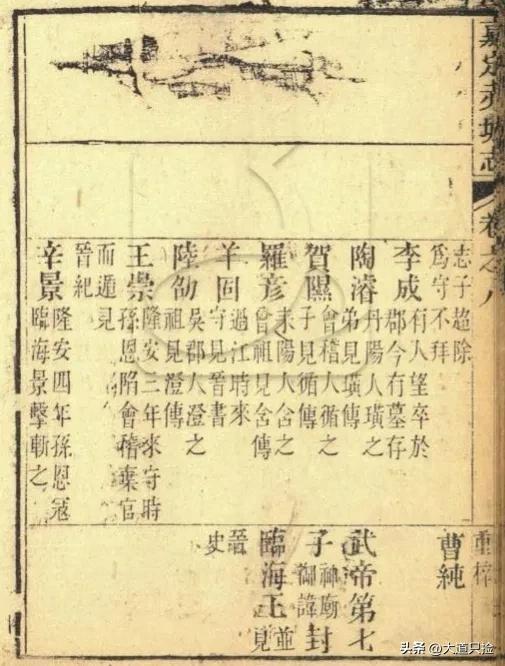 嘉定赤城志
卷之八
志子超除
為守不拜
李成 有人望卒於
郡今有墓存
陶濬 丹陽人璜之
弟見璜傳
賀隰 會稽人循之
子見循傳
羅彥 耒陽人含之
曾祖見含傳
羊 過江時來
守見晉書
陸劭 吳郡人澄之
祖見澄傳
王崇 隆安三年來守時
孫恩陷會稽棄官
而遁見
晉紀
辛景 隆安四年孫恩寇
臨海景擊斬之
曹純
武帝第七
子 神廟御諱 封
臨海王 並見
晉史
头条 @大道只捡